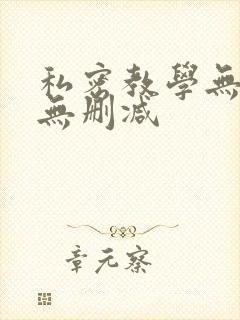 私密教學無
無刪減
章元察